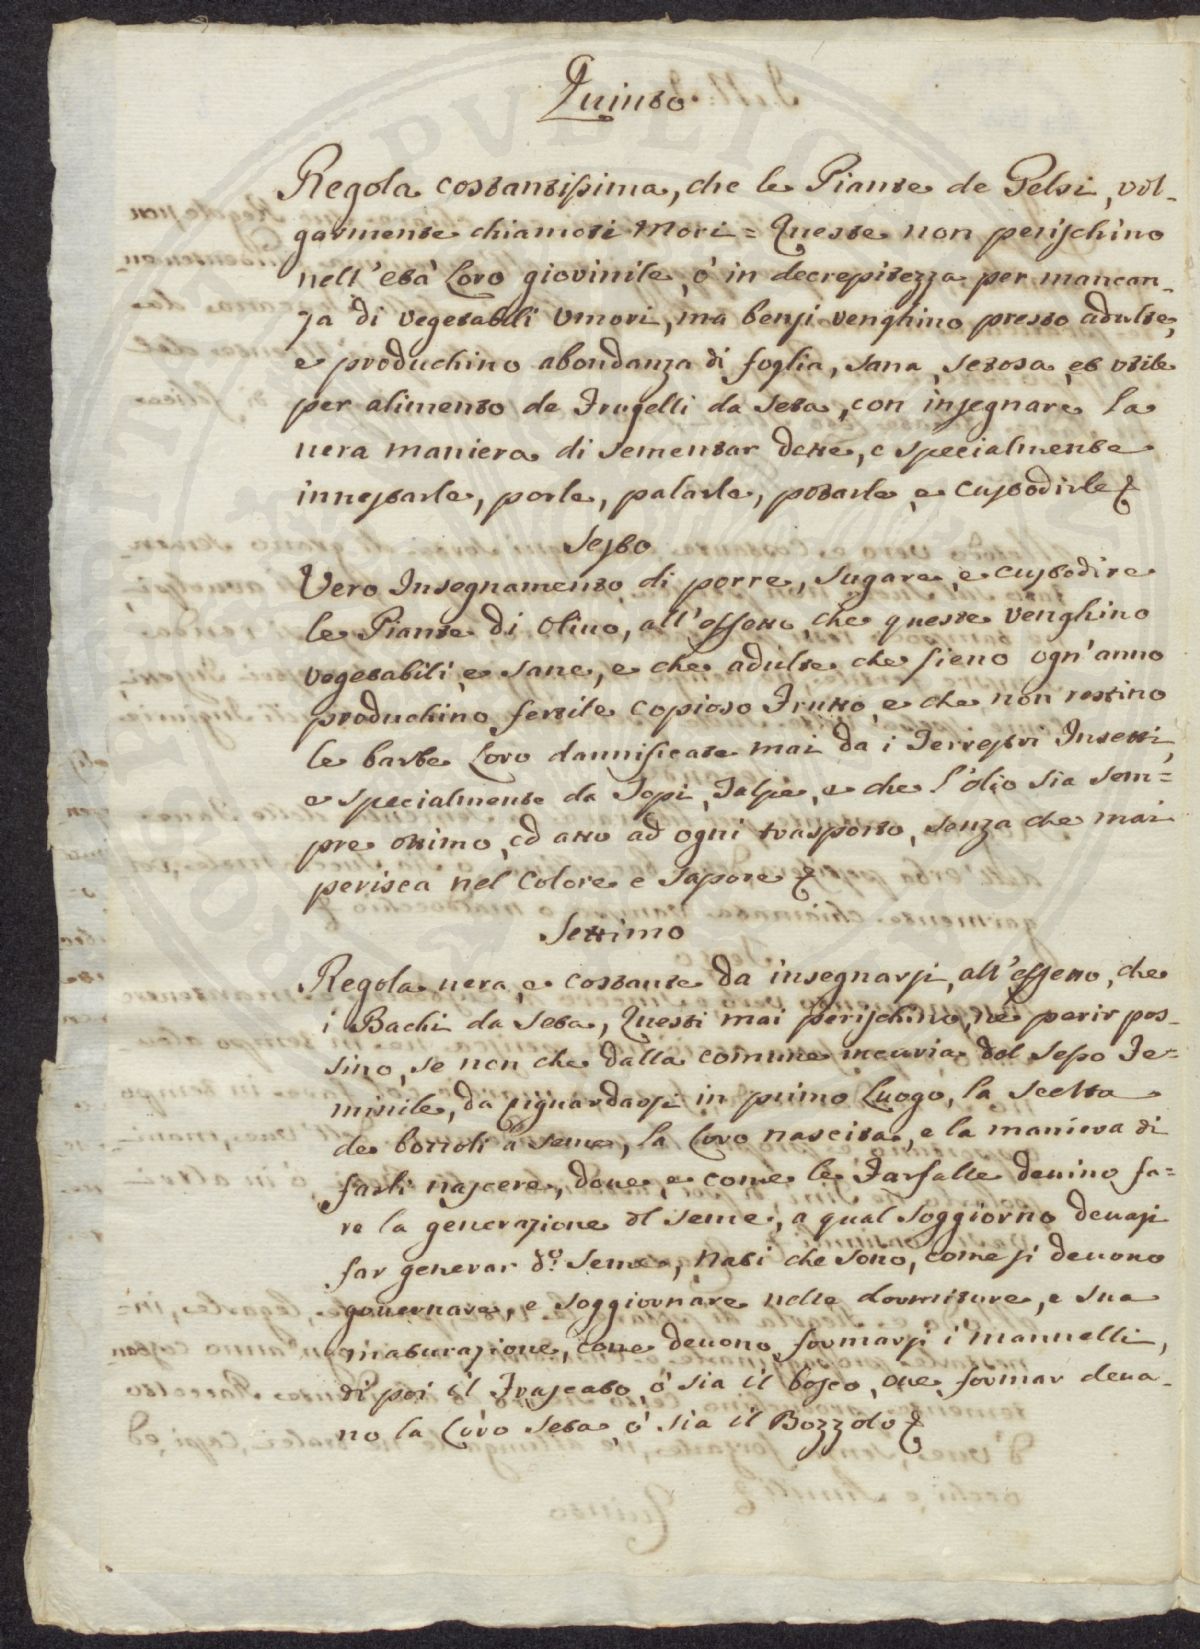 Quinto
Regola costantissima, che le Piante de Gelsi, vol-
garmente chiamati Mori = Queste non perischino
nell'età Loro giovinile, ò in decrepitezza per mancan-
za di vegetabili Vmori, ma bensi venghino presto adulte,
e produchino abondanza di foglia, sana, setosa, et vtile
per alimento de Frugelli da Seta, con insegnare la
uera maniera di sementar dette, e specialmente
innestarle, porle, palarle, potarle, e custodirle
Sesto
Vero Insegnamento di porre, sugare, e custodire
le Piante di Oliuo, all'effetto, che queste venghino
vegetabili, e sane, e che adulte che sieno ogn'anno
produchino fertile copioso Frutto, e che non restino
le barbe Loro dannificate mai da i Terrestri Insetti,
e specialmente da Topi, Talpe, e che l'olio sia sem=
pre ottimo, ed atto ad ogni trasporto, senza che mai
perisca nel Colore e Sapore
Settimo
Regola uera, e costante da insegnarsi, all'effetto, che
i Bachi da Seta, Questi mai perischino, nè perir pos-
sino, se non che dalla comune incuria del Sesso Fe=
minile, da riguardarsi in primo Luogo, la Scelta
de bozzoli à Seme, la Loro nascita, e la maniera di
farli nascere, doue, e come le Farfalle deuino fa=
re la generazione del Seme, a qual Soggiorno deuasi
far generar d.º Seme, Nati che sono, come si deuono
gouernare, e Soggiornare nelle dormiture, e sua
maturazione, come deuono formarsi i Mannelli,
di poi il Frascato, ò sia il bosco, oue formar deua-
no la Loro Seta, ò sia il Bozzolo